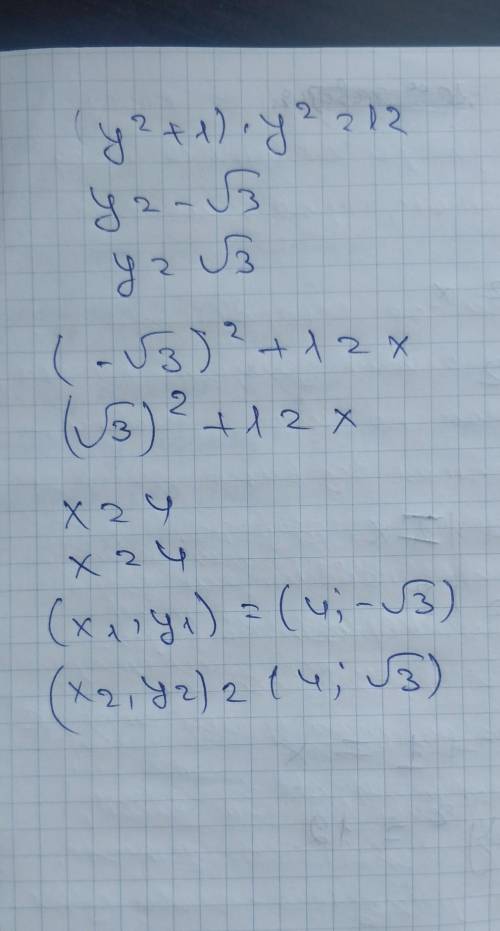 (y² + 1) · y² = 12
y = -√3
y = √3
(-√3)² + 1 = x
(√3)² + 1 = x
x = 4
x = 4
(x₁, y₁) = (4; -√3)
(x₂, y₂) = (4; √3)